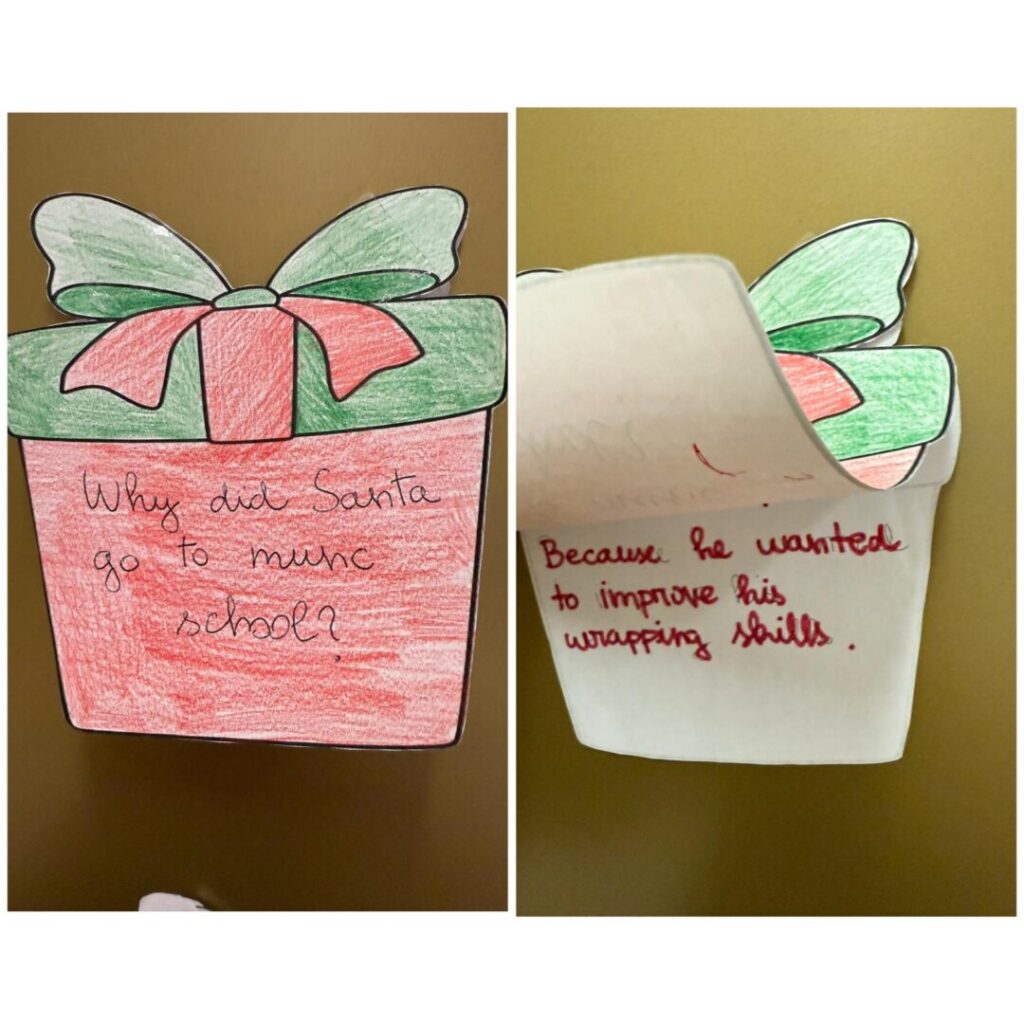 Why did Santa
go to music
school?
Because he wanted
to improve his
wrapping skills.